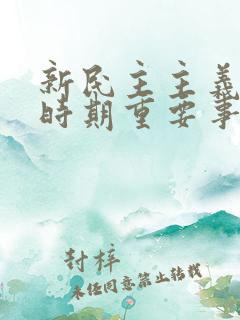 新民主主義
時期重要事
封梓
未经同意禁止转载